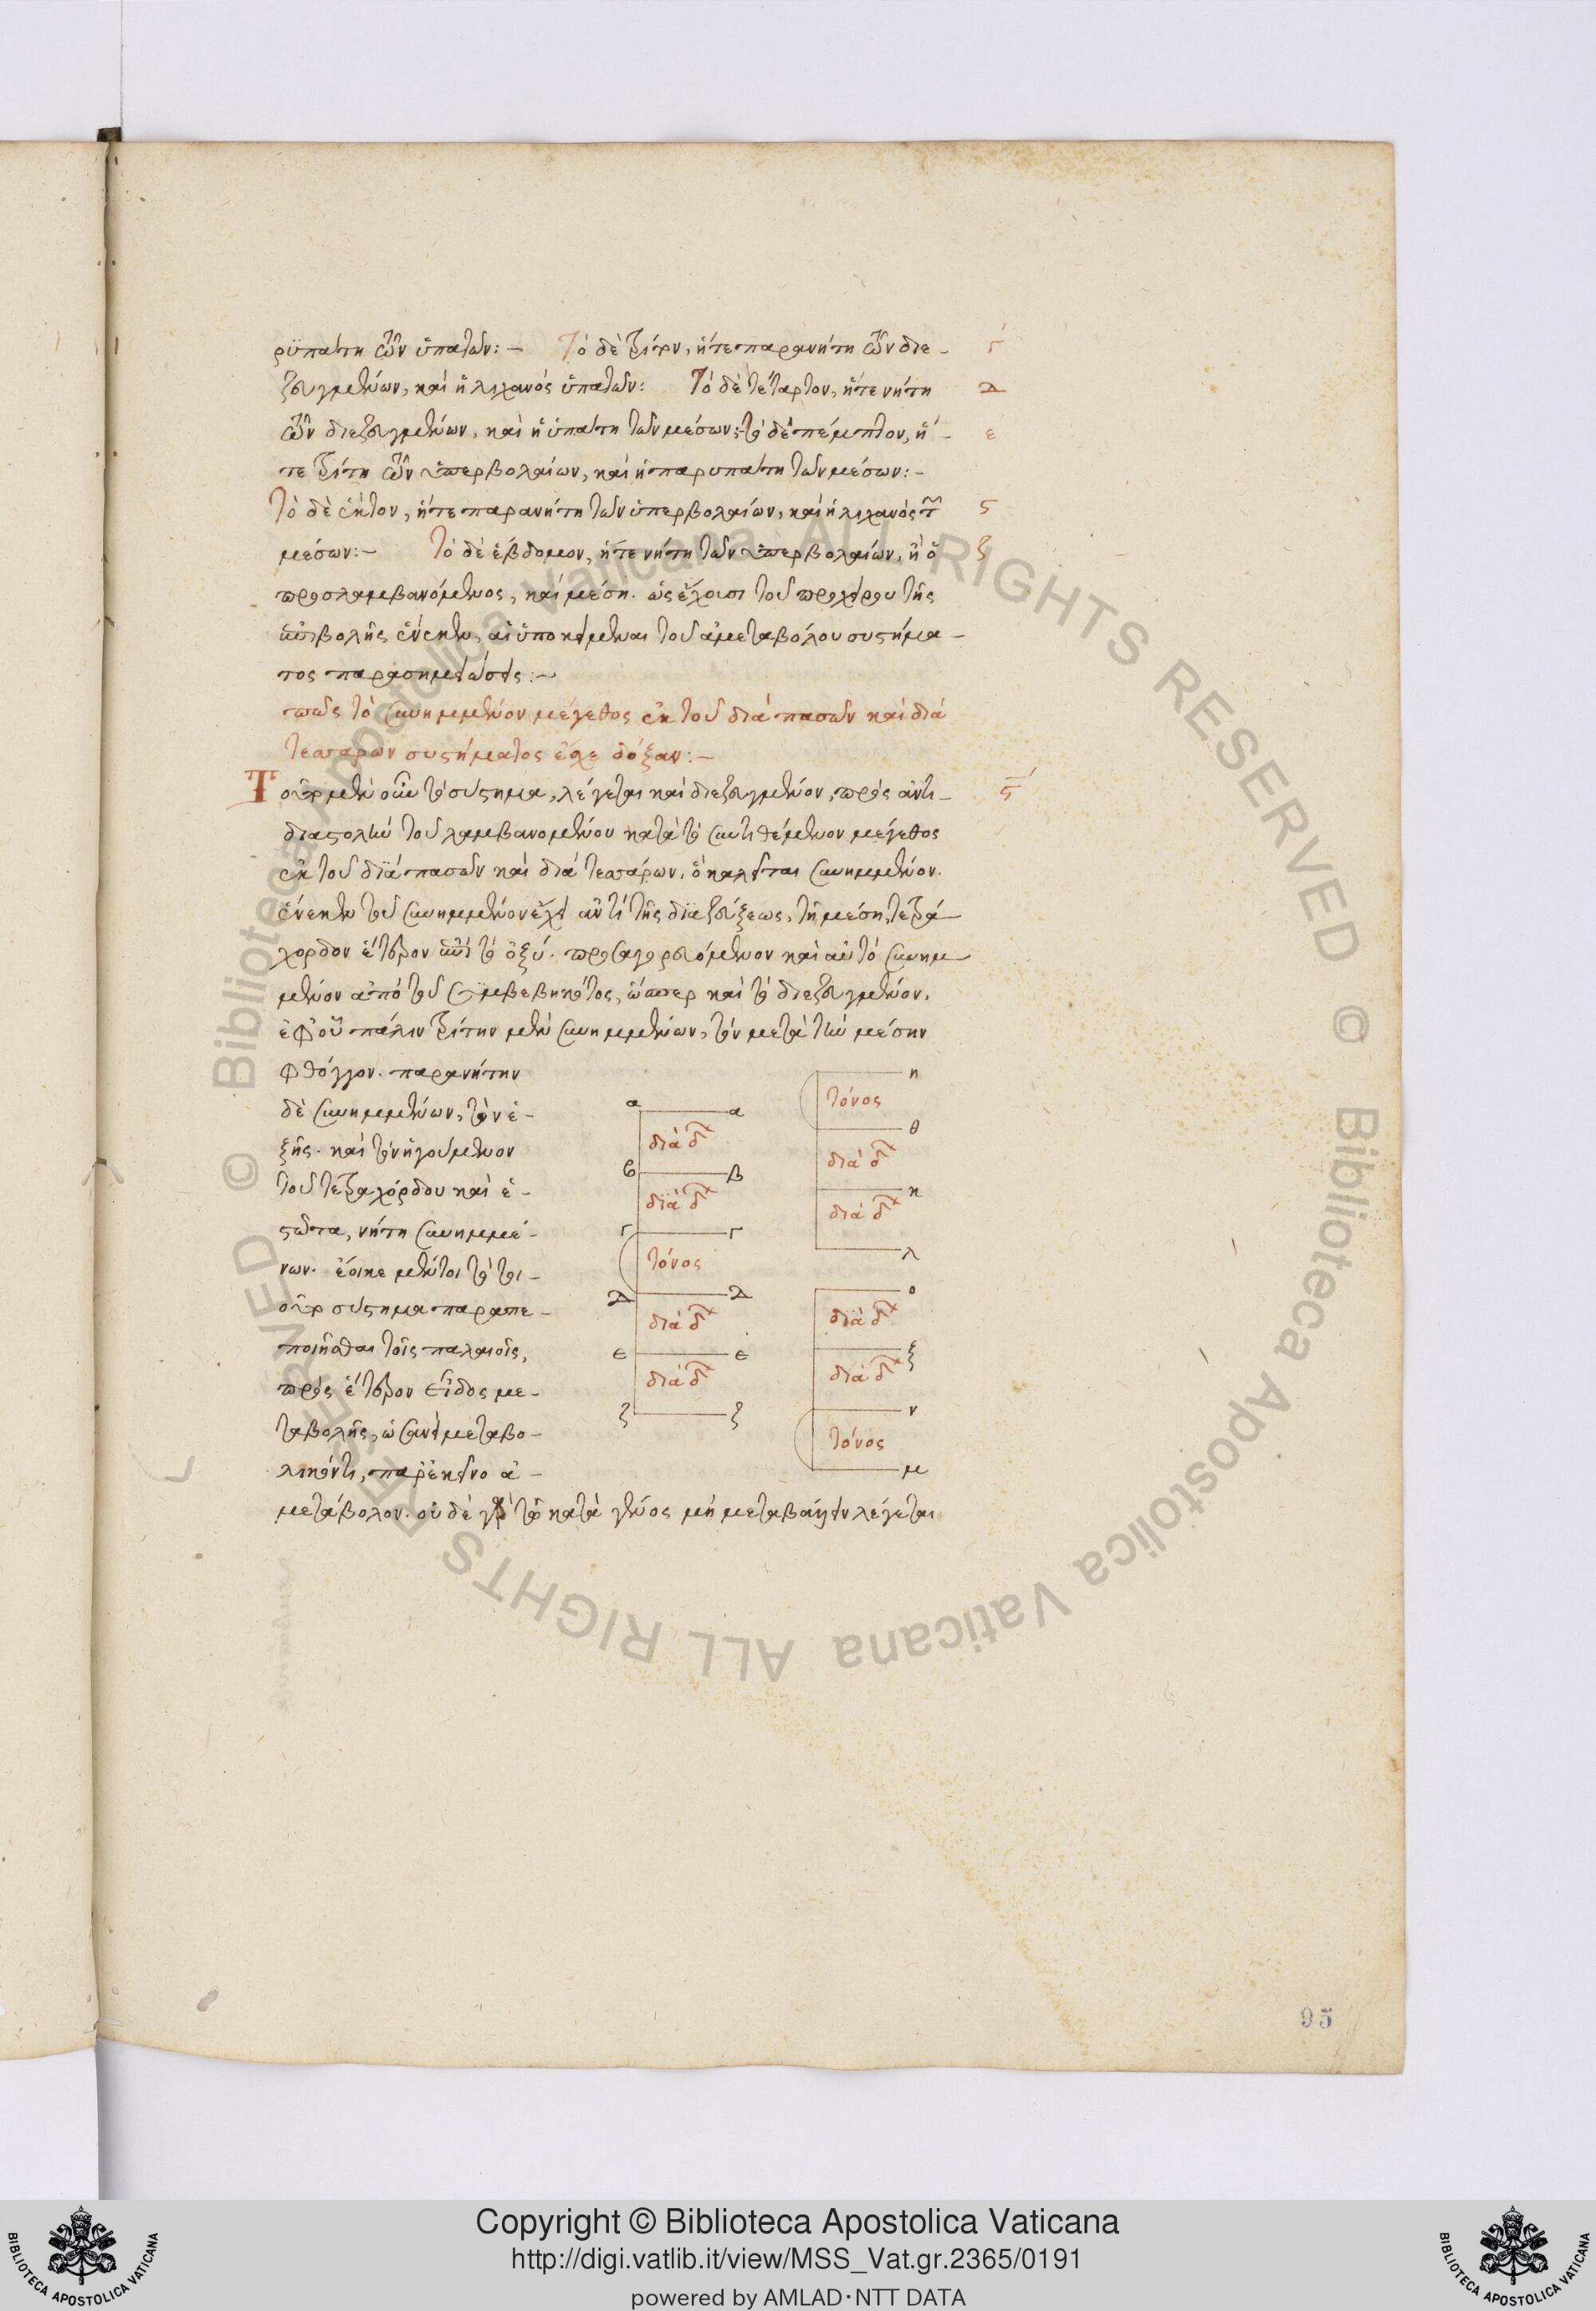 ρϋπάτη τῶν ὑπατῶν:— Τὸ δὲ τρίτον, ἥτε παρανήτη τῶν διε- γ
ζευγμένων, καὶ ἡ λιχανὸς ὑπατῶν: Τὸ δὲ τέταρτον, ἥτε νήτη δ
τῶν διεζευγμένων, καὶ ἡ ὑπάτη τῶν μέσων:- τὸ δὲ πέμπτον, ἥ- ε
τε τρίτη τῶν ὑπερβολαίων, καὶ ἡ παρυπάτη τῶν μέσων:-
Τὸ δὲ ἕκτον, ἥτε παρανήτη τῶν ὑπερβολαίων, καὶ ἡ λιχανὸς τῶν ϛ
μέσων:— Τὸ δὲ ἕβδομον, ἥτε νήτη τῶν ὑπερβολαίων, ἢ ὁ ζ
προσλαμβανόμενος, καὶ μέση. ὡς ἔχουσι τοῦ προχείρου τῆς
ἐπιβολῆς ἕνεκεν, αἱ ὑποκείμεναι τοῦ ἀμεταβόλου συστήμα-
τος παρασημειώσεις:~
πῶς τὸ συνημμένον μέγεθος ἐκ τοῦ διὰ πασῶν καὶ διὰ
τεσσάρων συστήματος ἔσχε δόξαν:—
Τοιοῦτο μὲν οὖν τὸ σύστημα, λέγεται καὶ διεζευγμένον, πρὸς ἀντι- ϛ
διαστολὴν τοῦ λαμβανομένου κατὰ τὸ συντιθέμενον μέγεθος
ἐκ τοῦ διὰ πασῶν καὶ διὰ τεσσάρων, ὃ καλεῖται συνημμένον.
ἕνεκεν τοῦ συνημμένον ἔχειν ἀντὶ τῆς διαζεύξεως, τῇ μέσῃ, τετρά-
χορδον ἕτερον ἐπὶ τὸ ὀξύ. προσαγορευόμενον καὶ αὐτὸ συνημ-
μένον ἀπὸ τοῦ συμβεβηκότος, ὥσπερ καὶ τὸ διεζευγμένον.
ἐφ' οὗ πάλιν τρίτην μὲν συνημμένων, τὸν μετὰ τὴν μέσην
φθόγγον. παρανήτην
δὲ συνημμένων, τὸν ἑ-
ξῆς. καὶ τὸν ἡγούμενον
τοῦ τετραχόρδου καὶ ἑ-
στῶτα, νήτη συνημμέ-
νων. ἔοικε μέντοι τὸ τοι-
οῦτο σύστημα παραπε-
ποιῆσθαι τοῖς παλαιοῖς,
πρὸς ἕτερον εἶδος με-
ταβολῆς, ὡσανεὶ μεταβο-
λικόν τι, παρ' ἐκεῖνο ἀ-
μετάβολον. οὐδὲ γὰρ τῷ κατὰ γένος μὴ μεταβάλλειν λέγεται
α α
διὰ δ
β β
διὰ δ
γ γ
τόνος
δ δ
διὰ δ
ε ε
διὰ δ
ζ ζ
η
τόνος
θ
διὰ δ
κ
διὰ δ
λ
ο
διὰ δ
ξ
διὰ δ
ν
τόνος
μ
95
© Biblioteca Apostolica Vaticana ALL RIGHTS RESERVED © Biblioteca Apostolica Vaticana ALL RIGHTS RESERVED
Copyright © Biblioteca Apostolica Vaticana
http://digi.vatlib.it/view/MSS_Vat.gr.2365/0191
powered by AMLAD·NTT DATA
BIBLIOTECA APOSTOLICA VATICANA
BIBLIOTECA APOSTOLICA VATICANA